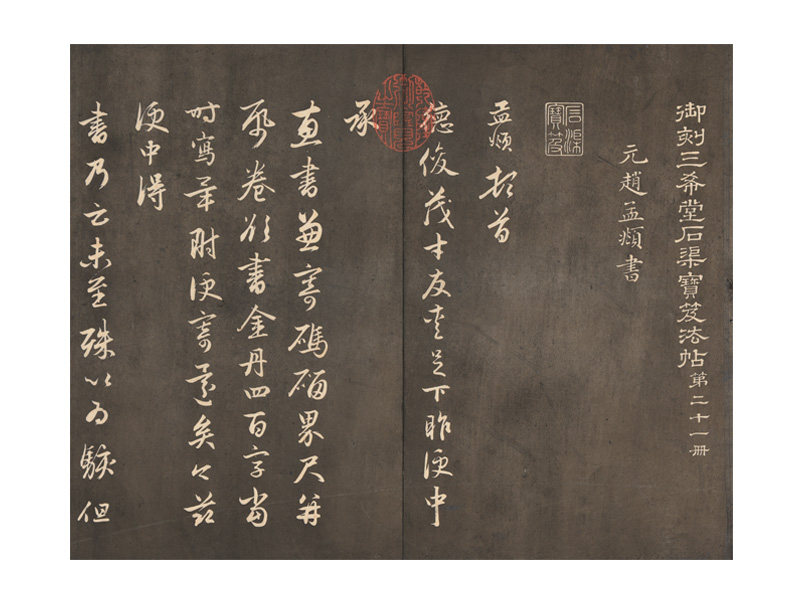 御刻三希堂石渠寶笈法帖第二十一冊
元趙孟頫書
石渠寶笈
孟頫頓首
德俊茂才友愛足下昨便中
承
惠書兼寄碼碯界尺并
帋卷欲書金丹四百字當
时寫畢附便寄還矣今茲
便中得
書乃云未至殊以为駭但